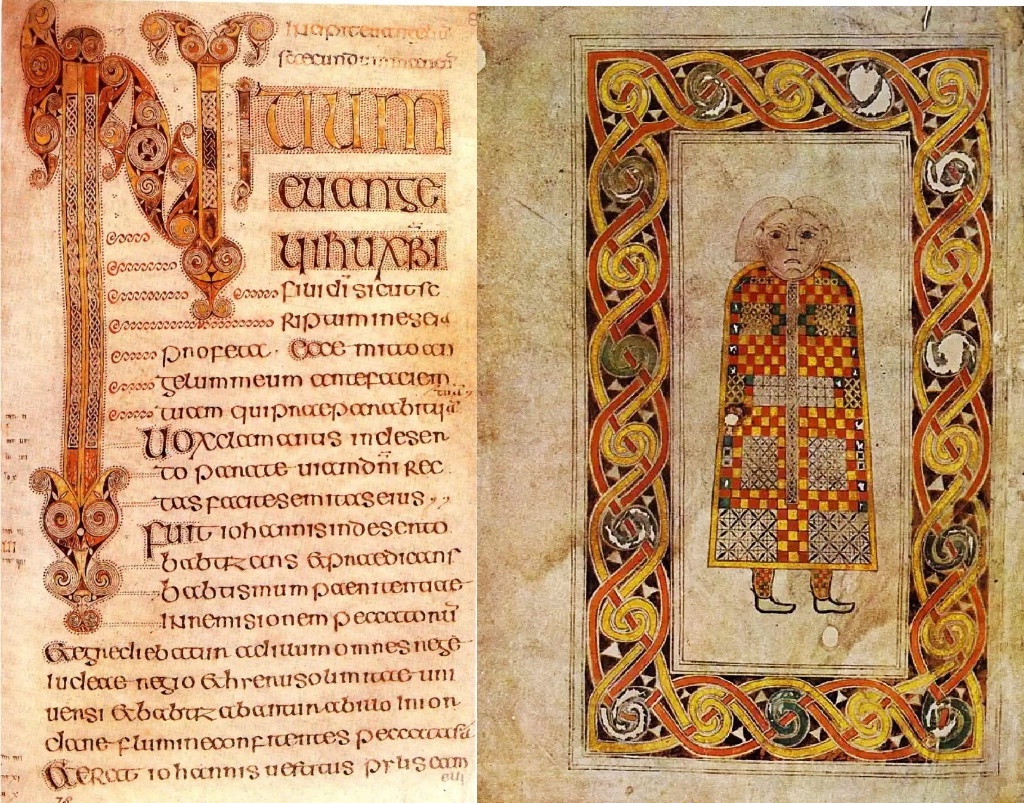 INITIUM
euange
lii ihu xpi
fili di sicut sc
riptum in eseia
profeta . Ecce mitto an
gelum meum ante faciem
tuam qui praeparabit uiā
Uox clamantis in deser
to parate uiam dn̄i rec
tas facite semitas eius
Fuit iohannis in deserto
babtizans & praedicans
babtismum paenitentiae
in remisionem peccatorū
& egrediebatur ad illum omnes
iudeae regio & hierusolimitae uni
uersi & babtizabantur ab illo in ior
dane flumine confitentes peccata sua
& ERAT iohannis uestitus pylis cam
eli